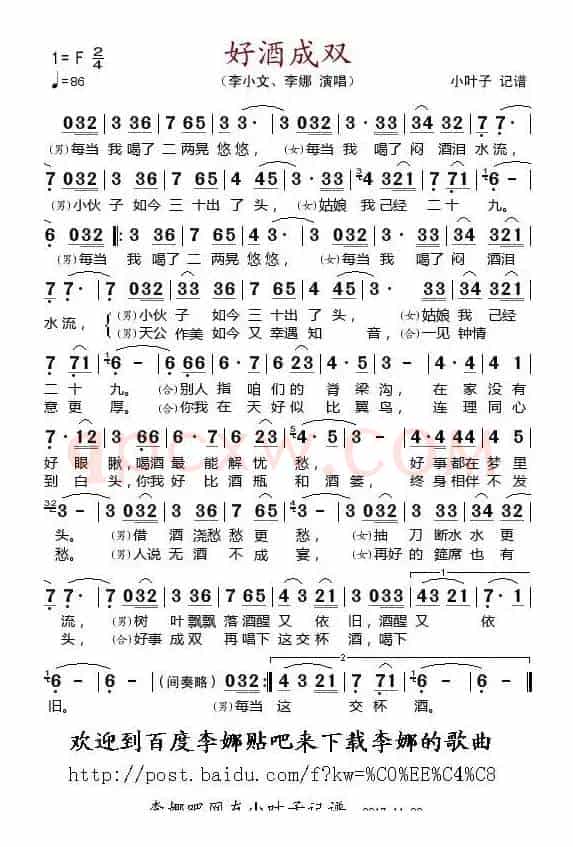 好酒成双
1=F 2/4
♩=86
（李小文、李娜 演唱）
小叶子 记谱
032 | 3 36 | 7 65 | 3 · 032 | 3 · 33 | 34 321 | 7 7 ·
(男)每当 我 喝了 二 两晃 悠 悠， (女)每当 我 喝了 闷 酒泪 水流，
7 032 | 3 36 | 7 65 | 4 45 | 3 · 32 | 4 321 | 7 71 | 6 -
(男)小伙 子 如今 三 十出 了 头， (女)姑娘 我 己经 二十 九。
6 032 |: 3 36 | 7 65 | 3 · 032 | 3 · 33 | 34 321
(男)每当 我 喝了 二 两晃 悠 悠， (女)每当 我 喝了 闷 酒泪
7 7 · | 7 032 | 3 36 | 7 65 | 4 45 | 3 · 33 | 34 321
水流， (男)小伙 子 如今 三 十出 了 头， (女)姑娘 我 己经
(男)天公 作美 如今 又 幸遇 知 音，(合)一见 钟情
7 71 | 6 - | 6 66 | 7 · 7 | 6 23 | 3 · 3 | 6 · 6 | 4 5
二十 九。 (合)别人 指 咱们 的 脊 梁 沟， 在 家 没 有
意更 厚。 (合)你我 在 天 好似 比 翼 鸟， 连 理 同 心
7 · 12 | 3 66 | 7 · 7 | 6 23 | 4 · 5 | 3 - | 4 · 4 | 4 5
好 眼 瞅，喝酒 最 能 解 忧 愁， 好 事都 在 梦 里
到 白 头，你我 好 比 酒 瓶 和 酒 篓， 终 身 相伴 不 发
头。 (男)借 酒 浇愁 愁 更 愁， (女)抽 刀 断水 水 更
愁。 (男)人说 无 酒 不 成 宴， (女)再好 的 筵席 也 有
1
流， (男)树 叶飘飘 落酒醒 又 依 旧，酒醒 又 依
头， (合)好事 成 双 再唱下 这 交杯 酒，喝下
2
6 - | 6 - | (间奏略) | 032 :| 4 321 | 7 71 | 6 - | 6 -
旧。 (男)每当 这 交杯 酒。
qqcxw.COM
欢迎到百度李娜贴吧来下载李娜的歌曲
http://post.baidu.com/f?kw=%C0%EE%C4%C8